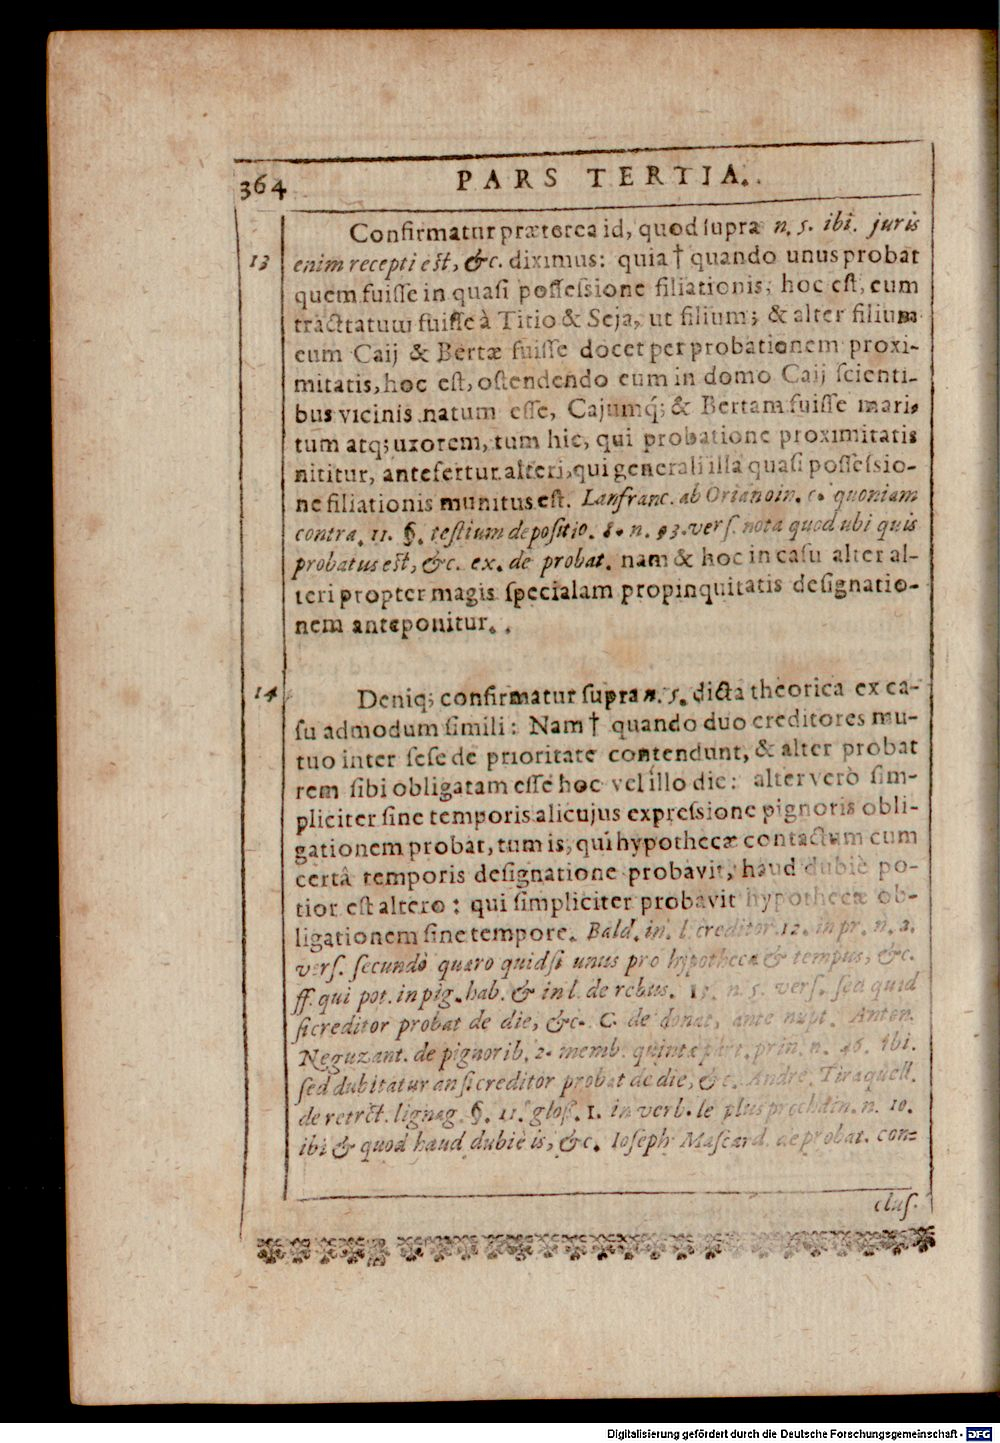 364
PARS TERTIA.
Confirmatur præterea id, quod supra n. 5. ibi. juris
13 enim recepti est, &c. diximus: quia † quando unus probat
quem fuisse in quasi possessione filiationis, hoc est, eum
tracttatum fuisse à Titio & Seja, ut filium; & alter filium
eum Caij & Bertæ fuisse docet per probationem proxi-
mitatis, hoc est, ostendendo eum in domo Caij scienti-
bus vicinis natum esse, Cajumq́; & Bertam fuisse mari-
tum atq; uxorem, tum hic, qui probatione proximitatis
nititur, antefertur alteri, qui generali illa quasi possessio-
ne filiationis munitus est. Lanfranc. ab Oriano in. c. quoniam
contra. 11. §. testium depositio. 8. n. 93. vers. nota quod ubi quis
probatus est, &c. ex. de probat. nam & hoc in casu alter al-
teri propter magis specialam propinquitatis designatio-
nem anteponitur.
14 Deniq; confirmatur supra n. 5. dicta theorica ex ca-
su admodum simili: Nam † quando duo creditores mu-
tuo inter sese de prioritate contendunt, & alter probat
rem sibi obligatam esse hoc vel illo die: alter verò sim-
pliciter sine temporis alicujus expressione pignoris obli-
gationem probat, tum is, qui hypothecæ contactum cum
certâ temporis designatione probavit, haud dubiè po-
tior est altero: qui simpliciter probavit hypothecæ ob-
ligationem sine tempore. Bald. in. l. creditor. 12. in pr. n. 2.
vers. secundò quæro quid si unus pro hypotheca & tempus, &c.
ff. qui pot. in pig. hab. & in l. de rebus. 15. n. 5. vers. sed quid
si creditor probat de die, &c. C. de donat. ante nupt. Anton.
Neguzant. de pignorib. 2. memb. quintæ part. prin. n. 46. ibi.
sed dubitatur an si creditor probat de die, &c. Andre. Tiraquell.
de retrct. lignag. §. 11. glos. 1. in verb. le plus prochain. n. 10.
ibi & quod haud dubiè is, &c. Ioseph Mascard. de probat. con-
clus.
Digitalisierung gefördert durch die Deutsche Forschungsgemeinschaft - DFG